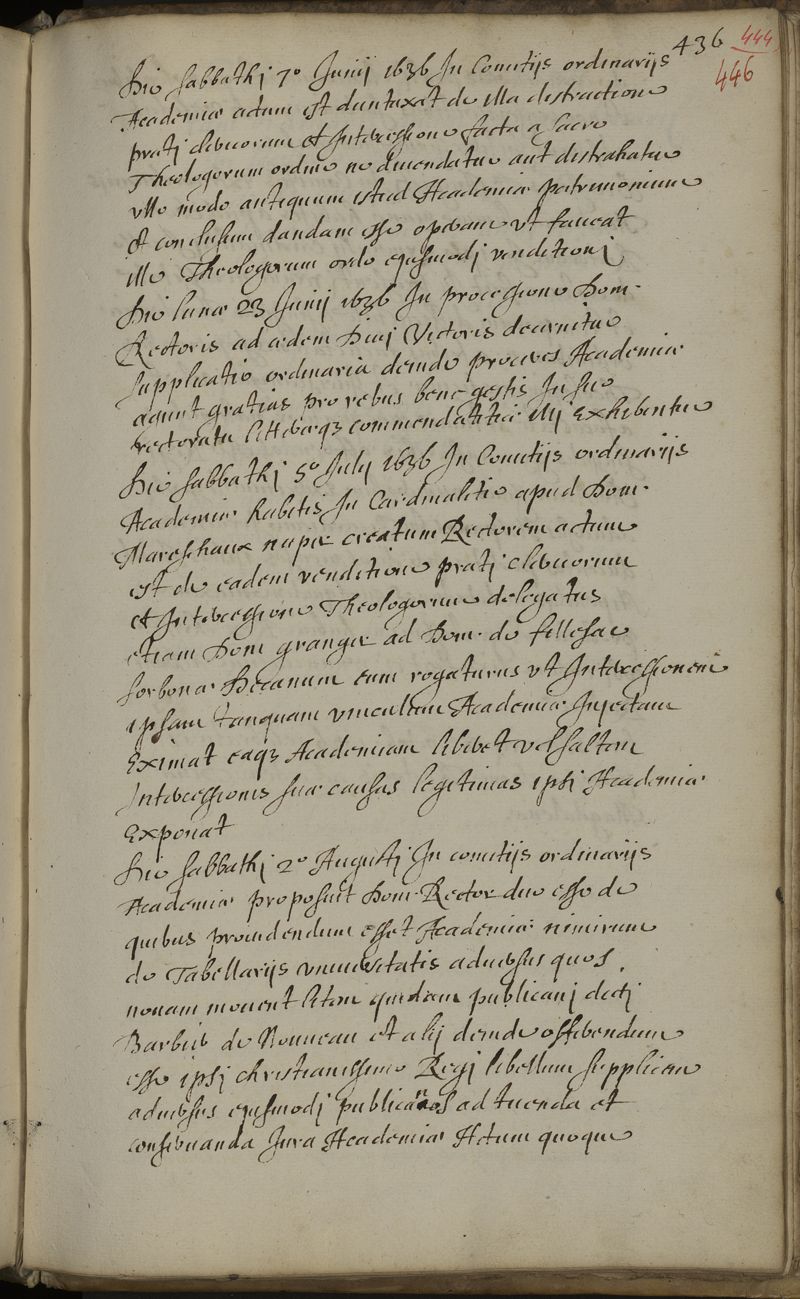 436 444
446
Die sabbathj 7º Junij 1636 In Comitijs ordinarijs
Academiæ actum est duntaxat de illa distractione
pratj clericorum et Intercessione facta a sacro
Theologorum ordine ne divendatur aut distrahatur
vllo modo antiquum istud Academiæ patrimonium
et conclusum dandam esse operam vt faueat
ille Theologorum ordo ejusmodj venditionj
Die lunæ 23 Junij 1636 In processione Dom.
Rectoris ad ædem Diuj Victoris decernitur
supplicatio ordinaria deinde proceres Academiæ
agunt gratias pro rebus bene gestis In suo
rectoratu litteræq3 commendatitiæ illj Exhibentur
Die sabbathj 5º July 1636 In Comitijs ordinarijs
Academiæ habitis In Cardinalitio apud Dom.
Mareschaux nuper creatum Rectorem actum
est de eadem venditione pratj clericorum
et Intercessione Theologorum delegatus
etiam Dom granger ad Dom. de fillesac
sorbonæ Decanum eum rogaturus vt Intercessionem
ipsam tanquam vinculum Academiæ Injectum
Eximat eaq3 Academiam liberet vel saltem
Intercessionis suæ causas legitimas ipsj Academiæ
Exponat
Die sabbathj 2º Augustj In comitijs ordinarijs
Academiæ proposuit Dom. Rector duo esse de
quibus prouidendum esset Academiæ nimirum
de Tabellarijs vniuersitatis aduersus quos
nouam mouent litem quidam publicanj dictj
Barbier de Nouueau et alij deinde offerendum
esse ipsj christianissimo Regj libellum supplicem
aduersus ejusmodj publicanos ad tuenda et
conseruanda Jura Academiæ Actum quoque